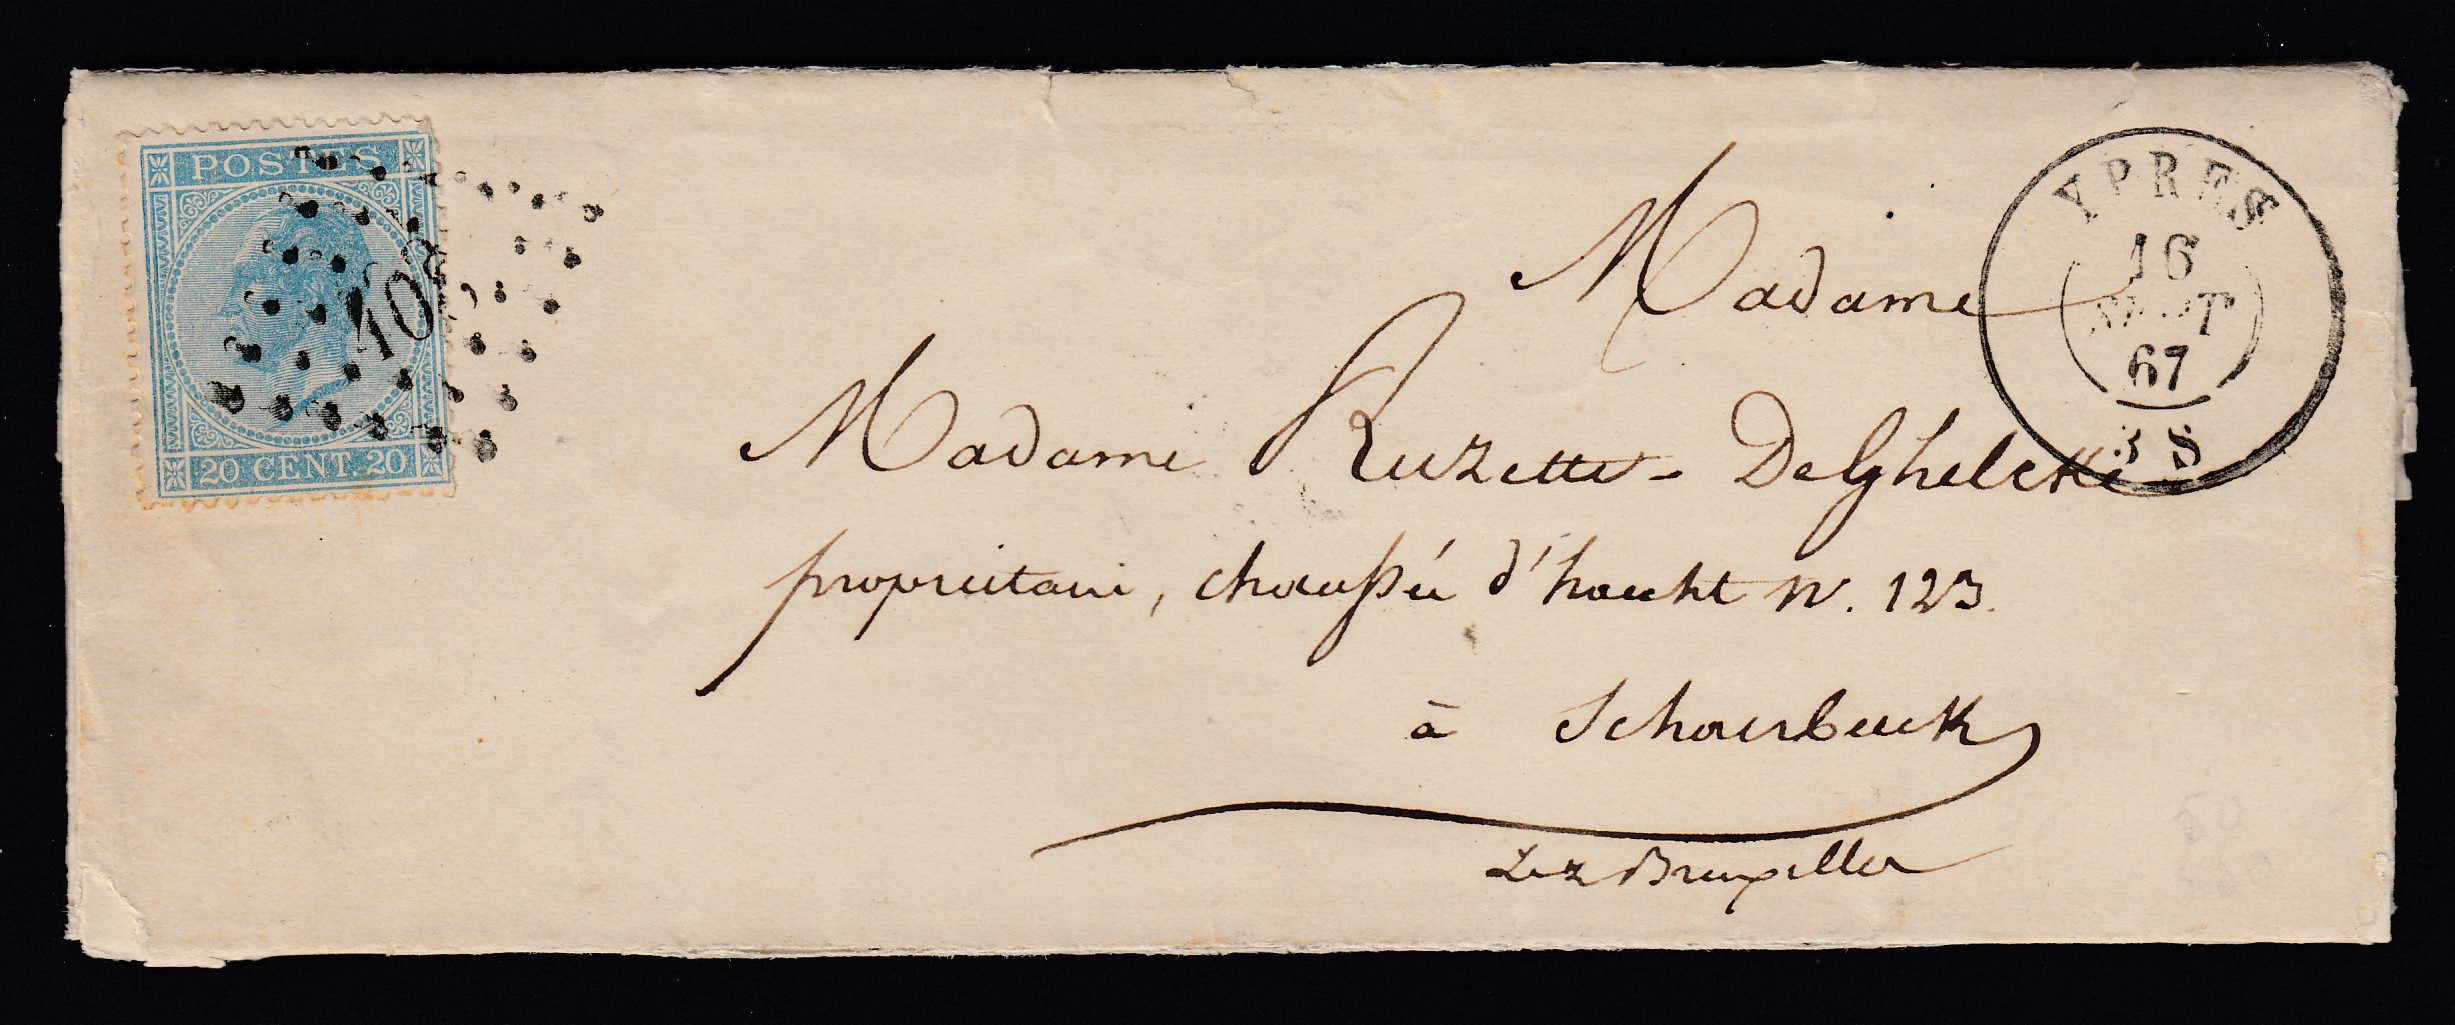 POSTES
20 CENT. 20
YPRES
16
SEPT
67
3 S
Madame
Madame Ruzette - DelGhelcke
propriétaire, chaussée d'haecht N. 123.
à Schaerbeeck
Lez Bruxelles